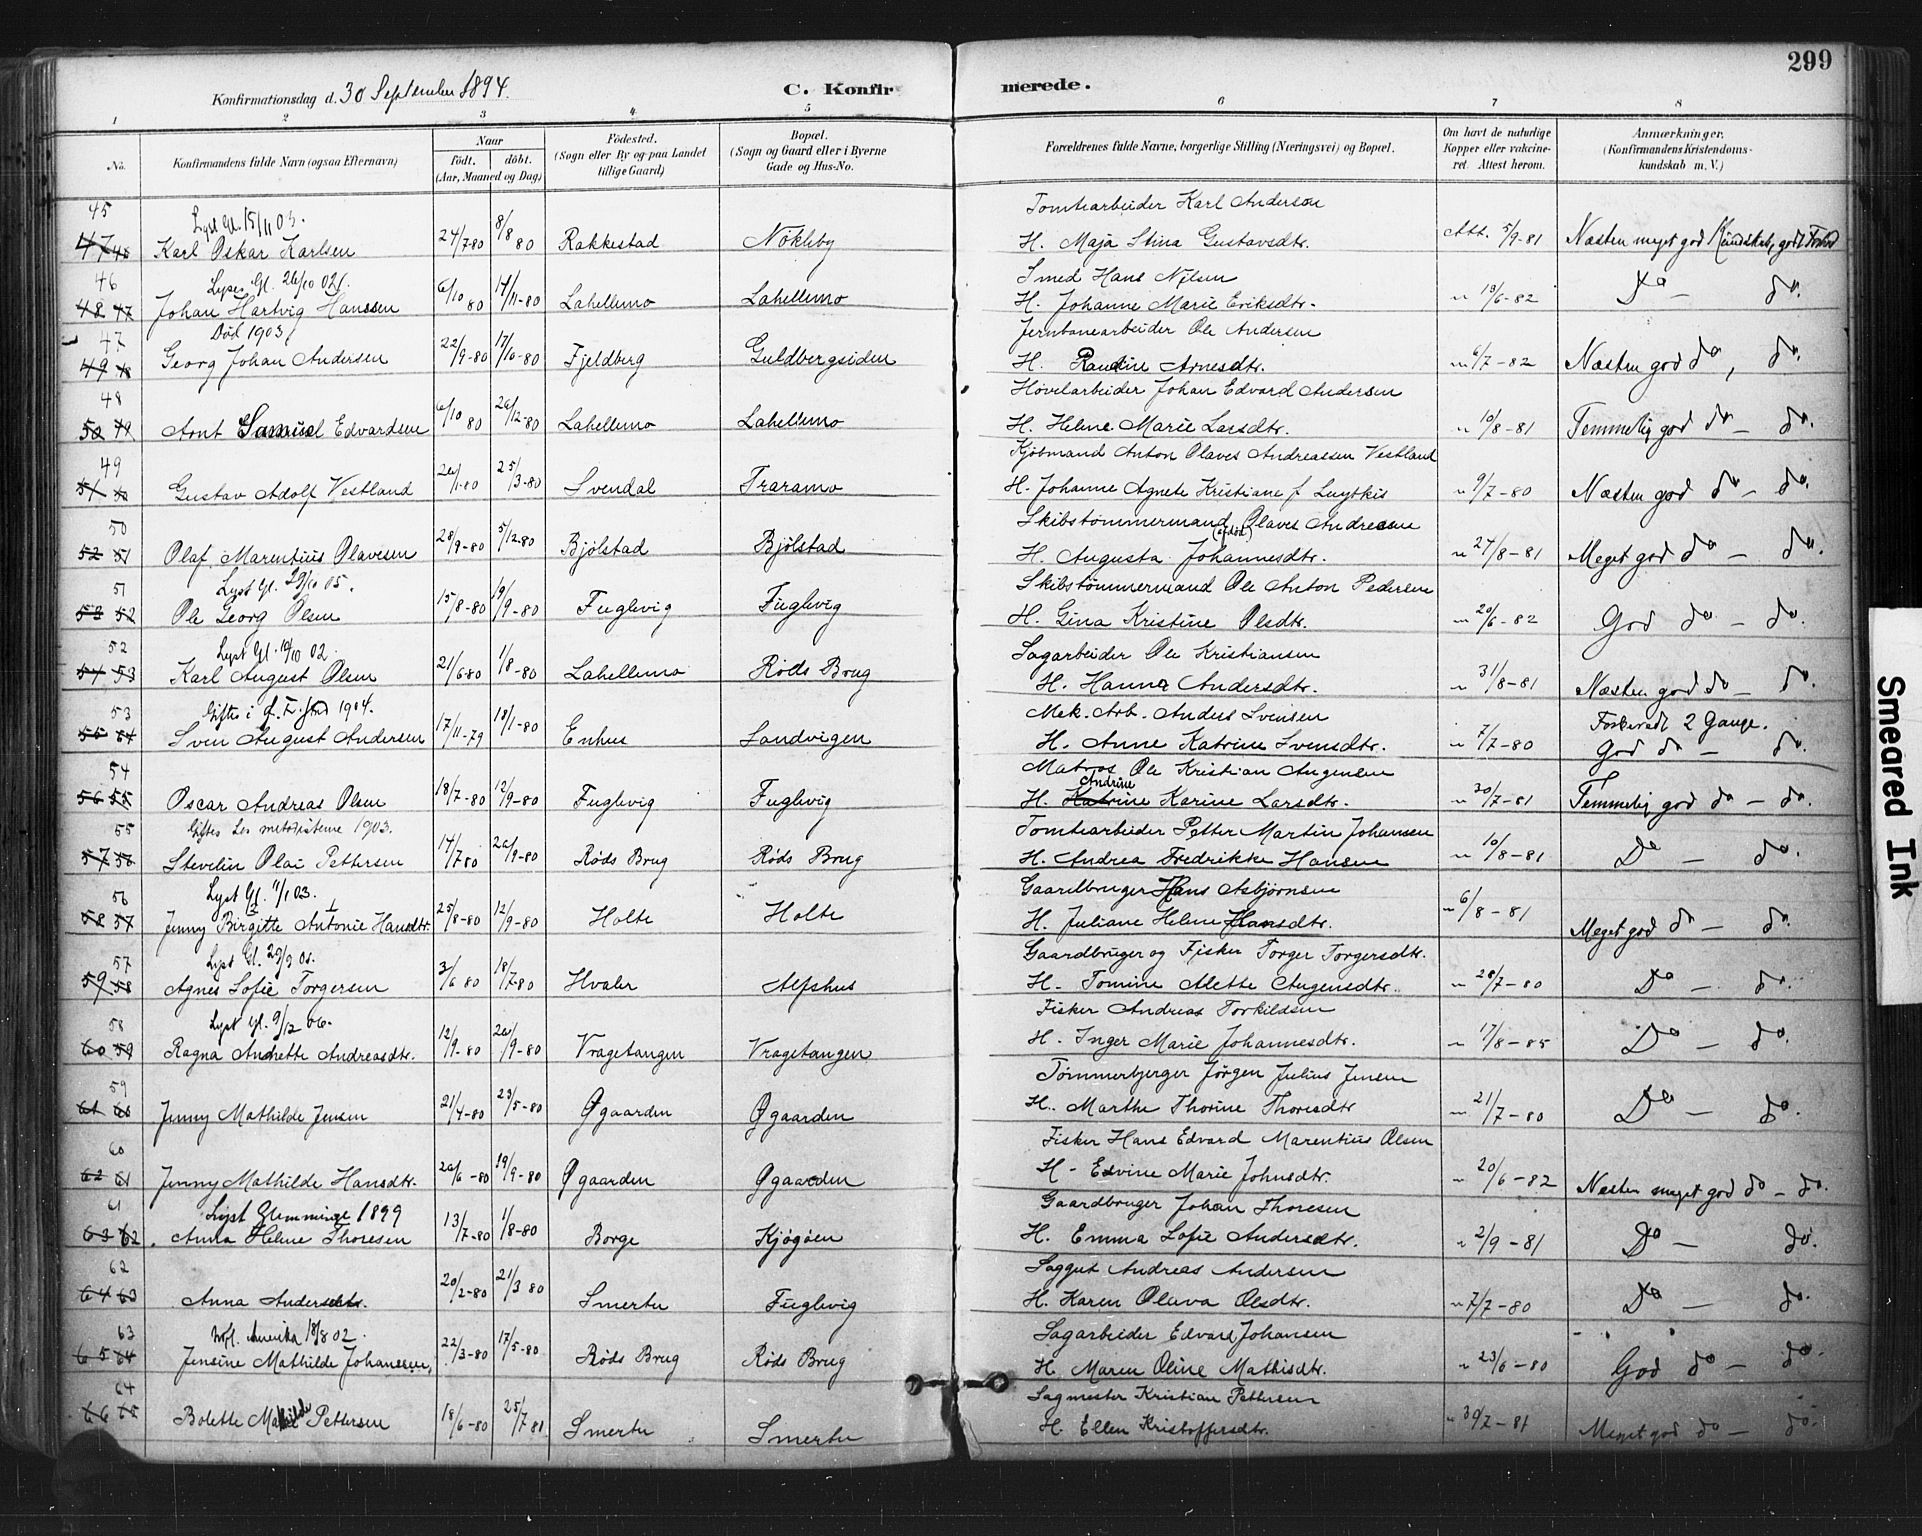 299
Konfirmationsdag d. 30 September 1894.
C. Konfirmerede.
1 2 3 4 5 6 7 8
No.
Konfirmandens fulde Navn (ogsaa Efternavn)
Naar
Født. døbt.
(Aar, Maaned og Dag)
Fødested.
(Sogn eller By og paa Landet
tillige Gaard)
Bopæl.
(Sogn og Gaard eller i Byerne
Gade og Hus-No.
Forældrenes fulde Navne, borgerlige Stilling (Næringsvei) og Bopæl.
Om havt de naturlige
Kopper eller vakcine-
ret. Attest herom.
Anmærkninger.
(Konfirmandens Kristendoms-
kundskab m. V.)
45 Lyst Gl. 15/11 03. Tomtearbeider Karl Anderson
47 46 Karl Oskar Karlsen 24/7-80 8/8 80 Rakkestad Nokleby H. Maja Stina Gustavsdtr. Att. 5/9-81 Næsten meget god Kundskab, godt Forhold
46 Lyses Gl. 26/10 02. Smed Hans Nilsen
48 47 Johan Hartvig Hanssen 6/10 80 14/11-80 Lahellemo Lahellemo H. Johanne Marie Eriksdtr. " 19/6-82 Do — do.
47 Død 1903 Jernbanearbeider Ole Andersen
49 48 Georg Johan Andersen 22/9-80 17/10-80 Fjeldberg Guldbergsiden H. Randine Arnesdtr. " 6/7-82 Næsten god do, do.
48 Høvelarbeider Johan Edvard Andersen
50 49 Arnt Samuel Edvardsen 6/10 80 26/12-80 Lahellemo Lahellemo H. Helene Marie Larsdtr. " 10/8-81 Temmelig god do — do.
49 Kjøbmand Anton Olaves Andreassen Vestland
51 50 Gustav Adolf Vestland 26/1-80 25/3-80 Svendal Traramo H. Johanne Agnete Kristiane f. " 9/7-80 Næsten god do — do.
50 Skibstømmermand Olaves Andreasen
52 51 Olaf Marentius Olavesen 28/9-80 5/12-80 Bjølstad Bjølstad H. Augusta (afdød) Johannesdtr. " 27/8-81 Meget god do — do.
51 Lyst Gl. 29/10 05. Skibstømmermand Ole Anton Pedersen
53 52 Ole Georg Olsen 15/8-80 19/9-80 Fuglevig Fuglevig H. Gina Kristine Olsdtr. " 20/6-82 God do — do.
52 Lyst Gl. 19/10 02. Sagarbeider Ole Kristiansen
54 53 Karl August Olsen 21/6-80 1/8-80 Lahellemo Røds Brug H. Hanna Andersdtr. " 31/8-81 Næsten god do — do.
53 Giftes i 1904. Mek. Arb. Anders Svensen Forberedt 2 Gange.
55 54 Sven August Andersen 17/11-79 18/1-80 Enhus Sandvigen H. Anne Katrine Svensdtr. " 7/7-80 God do — do.
54 Matros Ole Kristian Augensen
56 55 Oscar Andreas Olsen 18/7-80 12/9-80 Fuglevig Fuglevig H. Katrine Andrine Karine Larsdtr. " 20/7-81 Temmelig god do — do.
55 Giftes hos metodisterne 1903. Tomtearbeider Petter Martin Johansen
57 56 Stevelin Olai Pettersen 14/7 80 26/9-80 Røds Brug Røds Brug H. Andrea Fredrikke Hansen " 10/8-81 Do — do.
56 Lyst Gl. 11/1 03. Gaardbruger Hans Asbjørnsen
58 57 Jenny Birgitte Antonie Hansdtr. 25/8-80 12/9-80 Holte Holte H. Juliane Helene Hansdtr. " 6/8-81 Meget god do — do.
57 Lyst Gl. 29/9 01. Gaardbruger og Fisker Torger Torgersdtr.
59 58 Agnes Sofie Torgersen 3/6 80 18/7-80 Hvaler Alfshus H. Tomine Alette Augensdtr. " 28/7-80 Do — do.
58 Lyst Gl. 9/12 06. Fisker Andreas Torkildsen
60 59 Ragna Anchette Andreasdtr. 12/9-80 26/9-80 Vragetangen Vragetangen H. Inger Marie Johannesdtr. " 17/8-85 Do — do.
59 Tømmerbjerger Jørgen Julius Jensen
61 60 Jenny Mathilde Jensen 21/4-80 23/5-80 Øgaarden Øgaarden H. Marthe Thorine Thoresdtr " 21/7-80 Do — do.
60 Fisker Hans Edvard Marentius Olsen
62 61 Jenny Mathilde Hansdtr. 26/6-80 19/9-80 Øgaarden Øgaarden H. Edvine Marie Johnsdtr. " 20/6-82 Næsten meget god do — do.
61 Lyst Glemminge 1899 Gaardbruger Johan Thoresen
63 62 Anna Helene Thoresen 13/7-80 1/8-80 Borge Kjøgøen H. Emma Sofie Andersdtr. " 2/9-81 Do — do.
62 Saggut Andreas Andersen
64 63 Anna Andersdtr. 20/2-80 21/3 80 Smertu Fuglevig H. Karen Olava Olsdtr. " 7/7-80 Do — do.
63 Utfl. Amerika 18/8 02. Sagarbeider Edvard Johansen
65 64 Jensine Mathilde Johanssen 22/3-80 17/5-80 Røds Brug Røds Brug H. Maren Oline Mathisdtr. " 23/6-80 God do — do.
64 Sagmester Kristian Pettersen
66 65 Bolette Mathilde Pettersen 18/6-80 25/7 81 Smertu Smertu H. Ellen Kristoffersdtr. " 30/7-81 Meget god do — do.
Smeared Ink